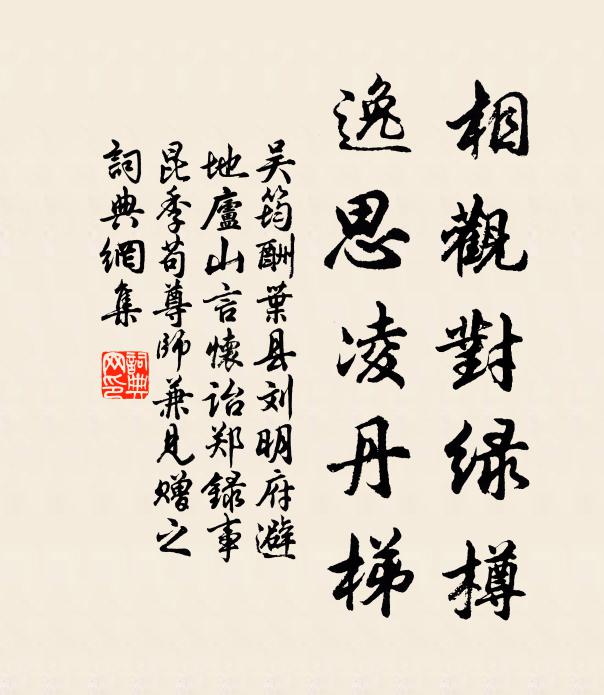 相觀對緑樽
逸思凌丹梯
吴筠酬葉县刘明府避
地廬山言懷诒郑録事
昆季苟尊师兼見赠之
詞典網集
詞典网印